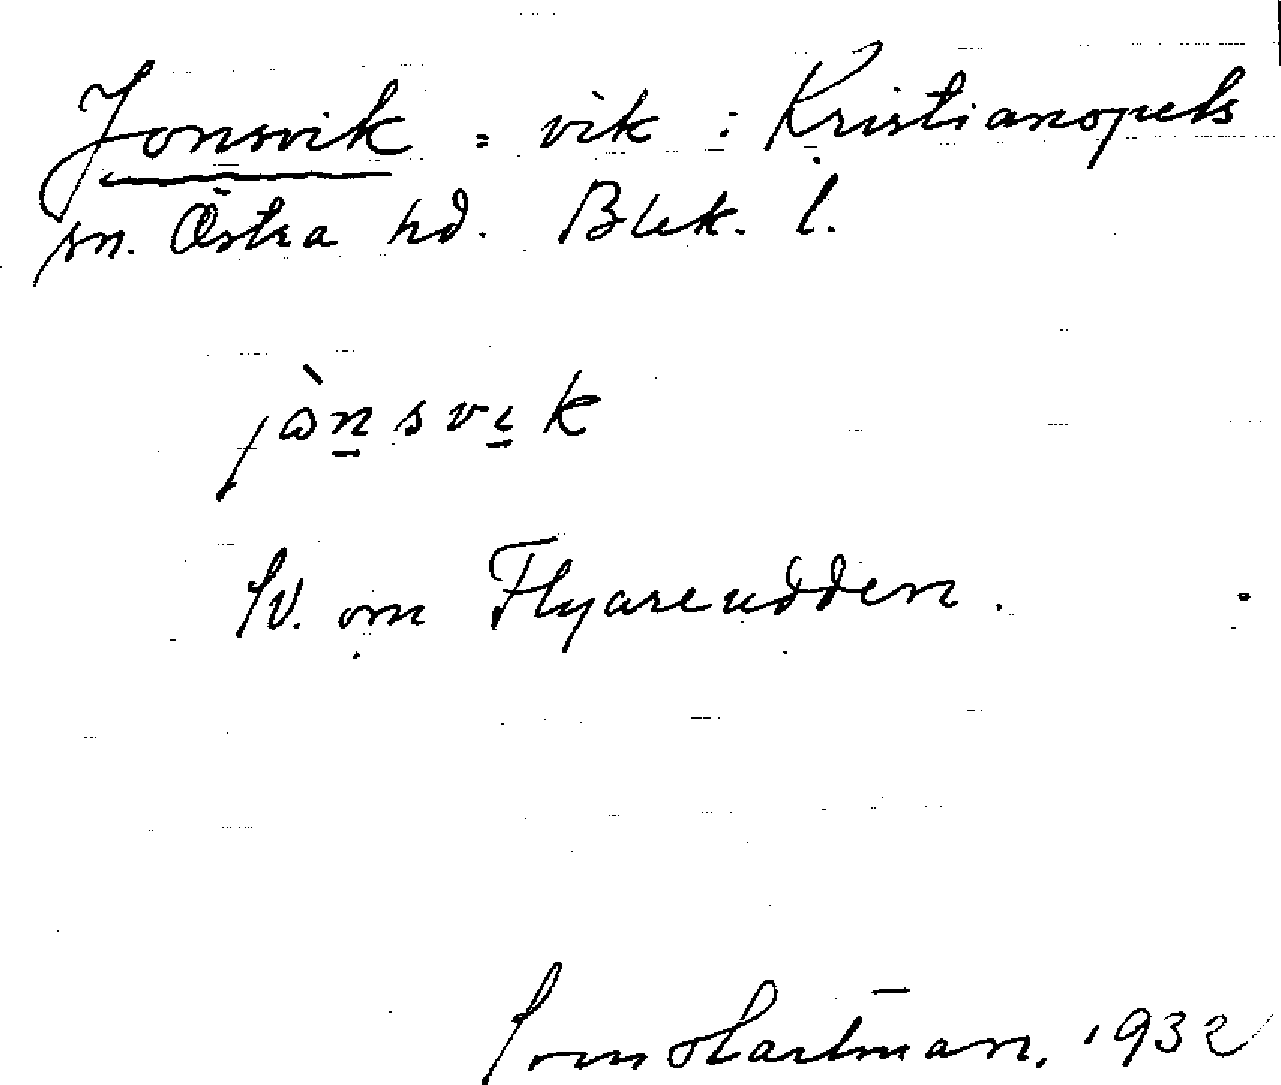 Jonsvik = vik i Kristianopels
sn. Östra hd. Blek. l.
jɷ̀nsvik
SV. om Flyareudden.
Hartman, 1932